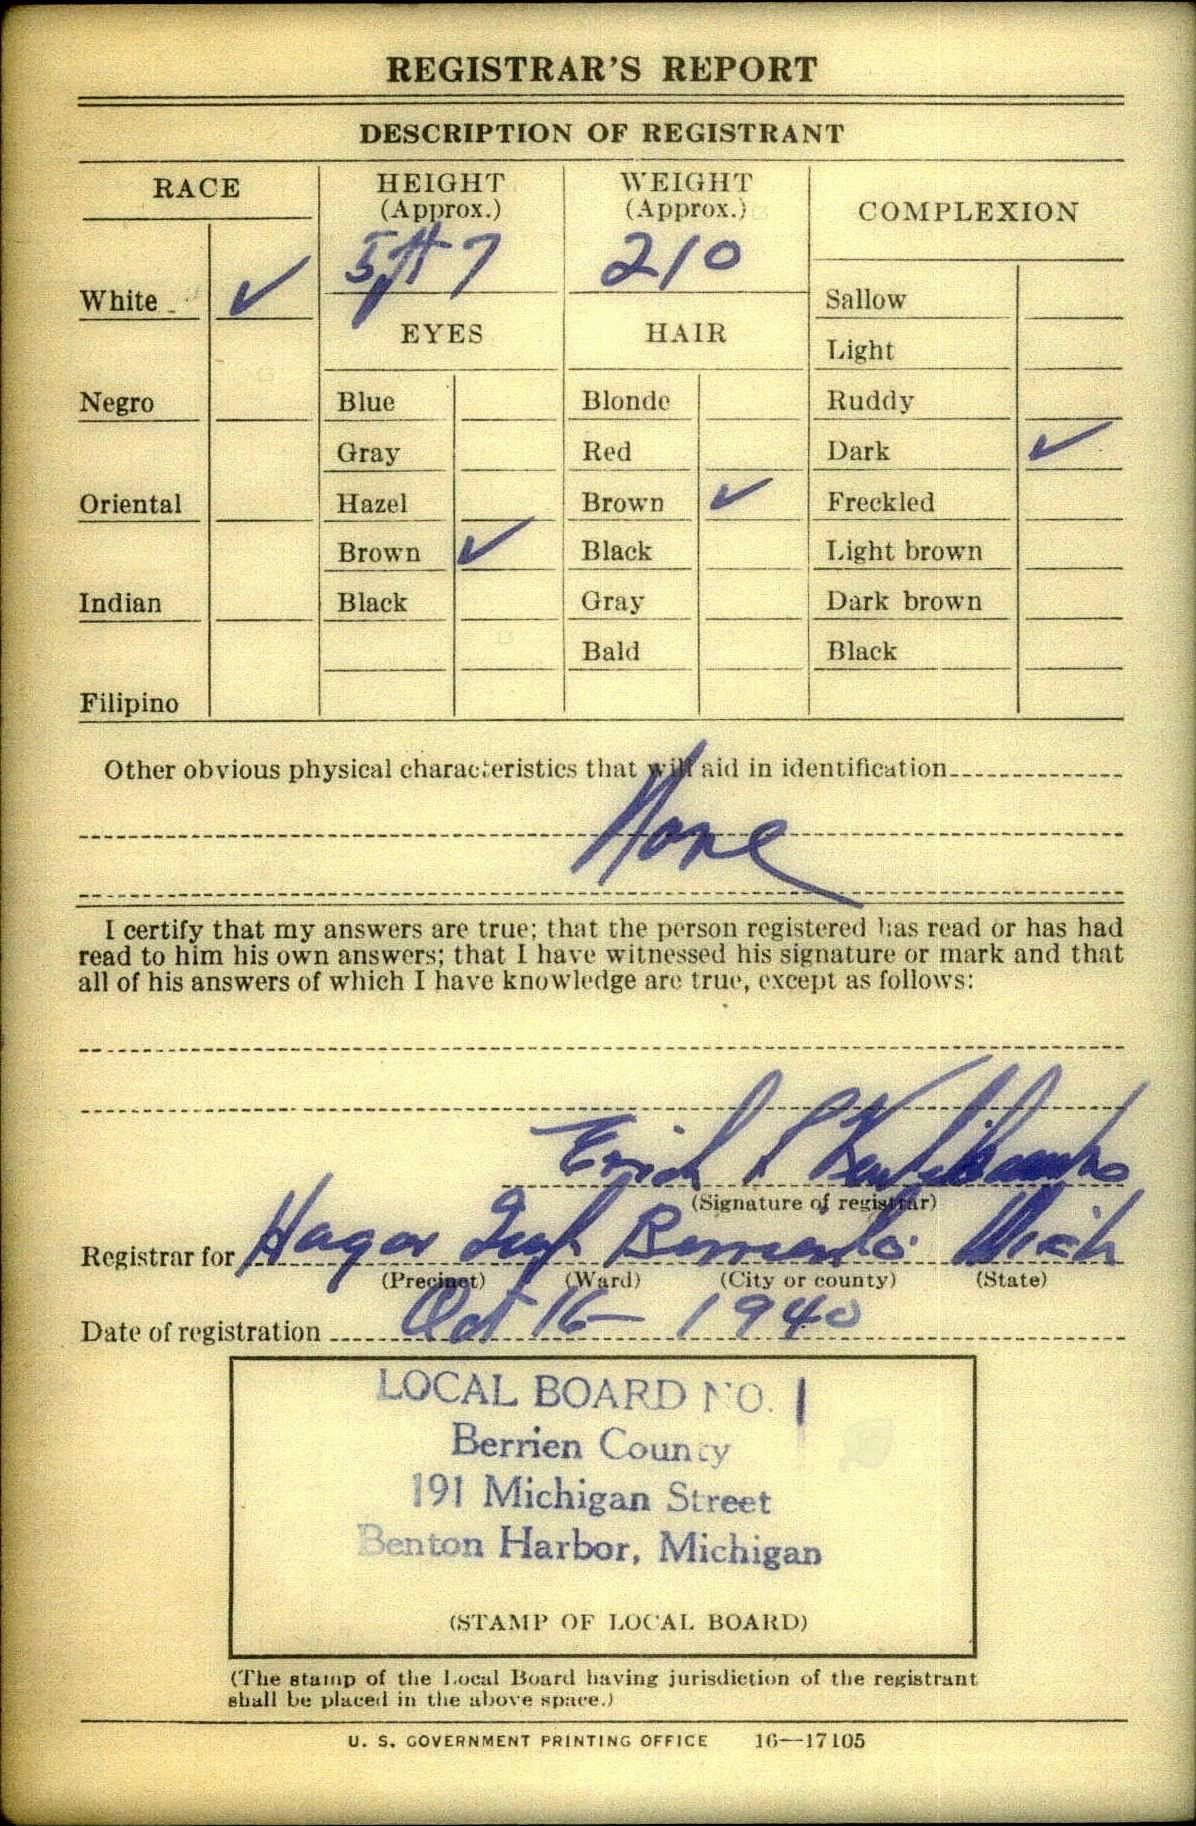 REGISTRAR'S REPORT
DESCRIPTION OF REGISTRANT
RACE
HEIGHT
(Approx.)
WEIGHT
(Approx.)
COMPLEXION
5 ft 7
210
White ✓
Sallow
EYES
HAIR
Light
Negro
Blue
Blonde
Ruddy
Gray
Red
Dark ✓
Oriental
Hazel
Brown ✓
Freckled
Brown ✓
Black
Light brown
Indian
Black
Gray
Dark brown
Bald
Black
Filipino
Other obvious physical characteristics that will aid in identification
None
I certify that my answers are true; that the person registered has read or has had
read to him his own answers; that I have witnessed his signature or mark and that
all of his answers of which I have knowledge are true, except as follows:
Erich
(Signature of registrar)
Registrar for Hagar Twp Berrien Co. Mich
(Precinct) (Ward) (City or county) (State)
Date of registration Oct 16 - 1940
LOCAL BOARD NO. 1
Berrien County
191 Michigan Street
Benton Harbor, Michigan
(STAMP OF LOCAL BOARD)
(The stamp of the Local Board having jurisdiction of the registrant
shall be placed in the above space.)
U. S. GOVERNMENT PRINTING OFFICE 16—17105